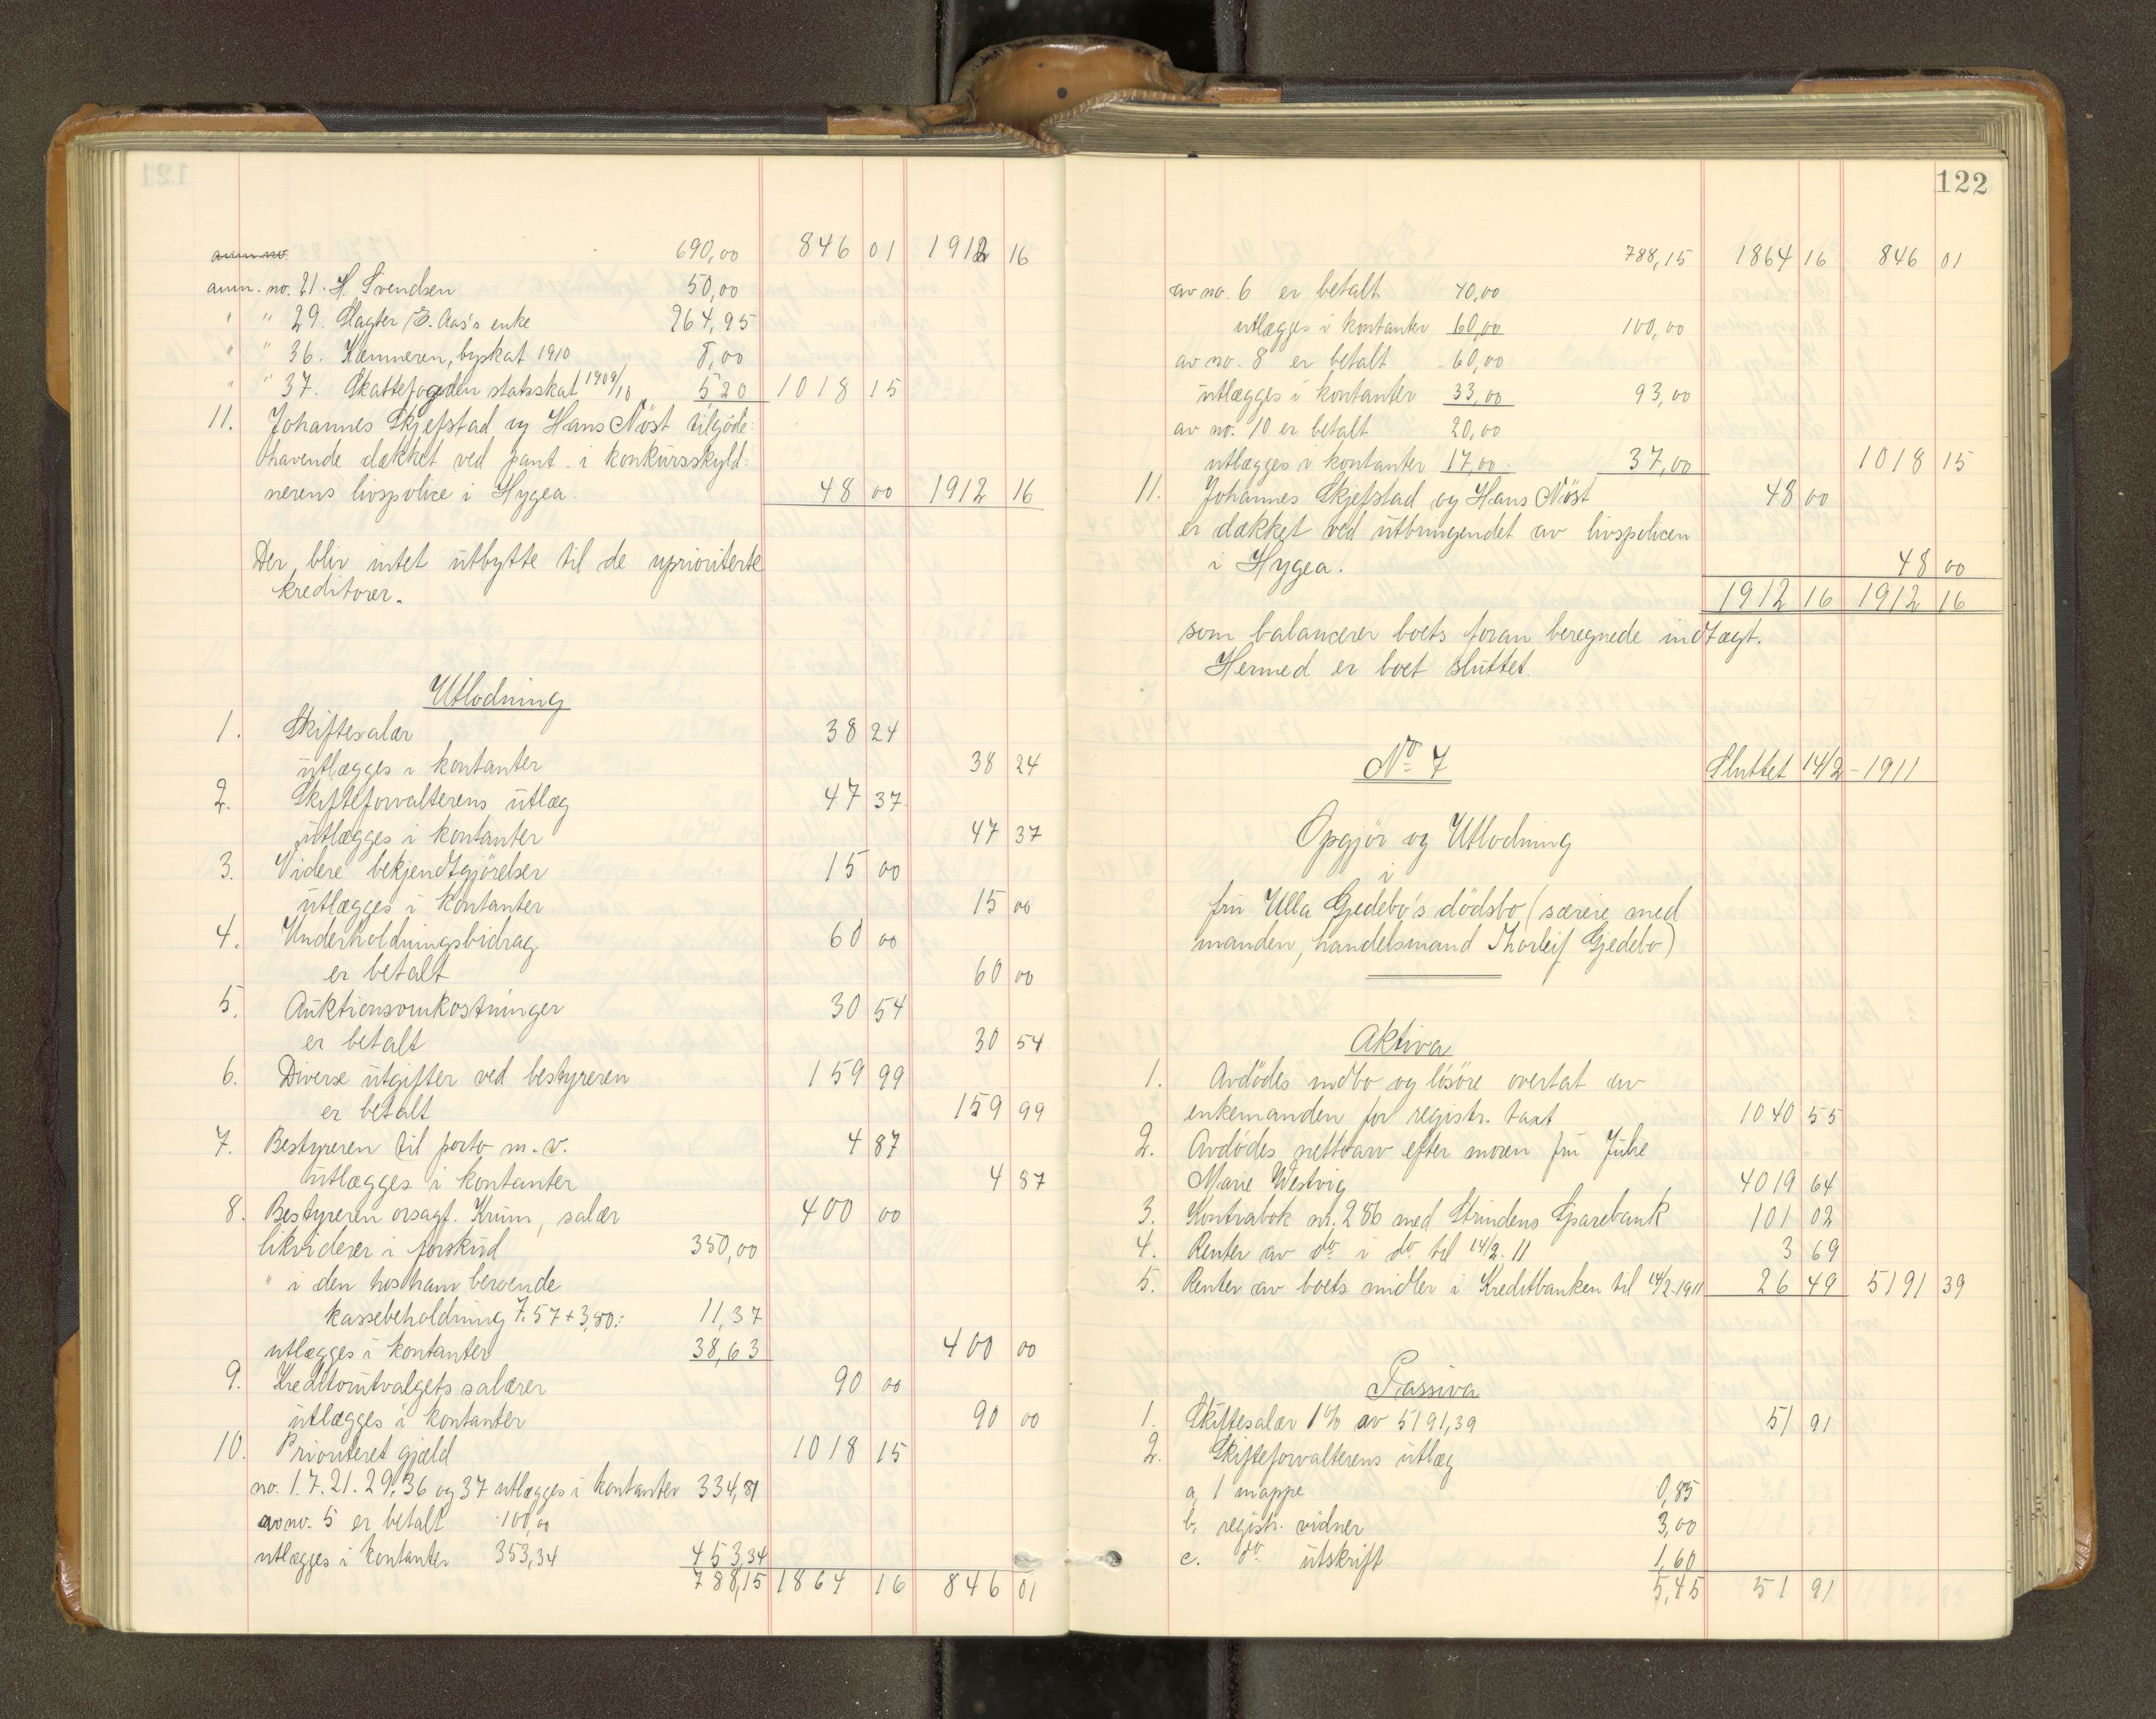 690,00 846 01 1912 16
anm. no. 21. H. Svendsen 50,00
" " 29. Slagter E. Aas's enke 264,95
" " 36. Kæmneren, byskat 1910 8,00
" " 37. Skattefogden statsskat 1909/10 5,20 1018 15
11. Johannes Skjefstad og Hans Nöst tilgode-
havende dækket ved pant i konkursskyld-
nerens livspolice i Hygea. 48 00 1912 16
Der bliv intet utbytte til de uprioriterte
kreditorer.
Utlodning
1. Skiftesalær 38 24
utlægges i kontanter 38 24
2. Skifteforvalterens utlæg 47 37
utlægges i kontanter 47 37
3. Videre bekjendtgjörelser 15 00
utlægges i kontanter 15 00
4. Underholdningsbidrag 60 00
er betalt 60 00
5. Auktionsomkostninger 30 54
er betalt 30 54
6. Diverse utgifter ved bestyreren 159 99
er betalt 159 99
7. Bestyreren til porto m. v. 4 87
utlægges i kontanter 4 87
8. Bestyreren orsagf. Krum, salær 400 00
likviderer i forskud 350,00
" i den hos ham beroende
kassebeholdning 7.57 + 3,80: 11,37
utlægges i kontanter 38,63 400 00
9. Kreditorutvalgets salærer 90 00
utlægges i kontanter 90 00
10. Prioritert gjæld 1018 15
no. 1. 7. 21. 29. 36 og 37 utlægges i kontanter 334,81
av no. 5 er betalt 100,00
utlægges i kontanter 353,34 453,34
788,15 1864 16 846 01
122
788,15 1864 16 846 01
av no. 6 er betalt 40,00
utlægges i kontanter 60,00 100,00
av no. 8 er betalt 60,00
utlægges i kontanter 33,00 93,00
av no. 10 er betalt 20,00
utlægges i kontanter 17,00 37,00 1018 15
11. Johannes Skjefstad og Hans Nöst 48 00
er dækket ved utbringendet av livspolicen
i Hygea. 48 00
1912 16 1912 16
som balancerer boets foran beregnede indtægt.
Hermed er boet sluttet.
No 7 Sluttet 14/2 - 1911
Opgjör og Utlodning
i
fru Ulla Gjedebo's dödsbo (særeie med
manden, handelsmand Thorleif Gjedebo)
Aktiva
1. Avdödes indbo og lösöre overtat av
enkemanden for registr. taxt 1040 55
2. Avdödes nettoarv efter moren fru Julie
Marie Westvig 4019 64
3. Kontrabok nr. 286 med Strindens Sparebank 101 02
4. Renter av do i do til 14/2. 11 3 69
5. Renter av boets midler i Kreditbanken til 14/2 1911 26 49 5191 39
Passiva
1. Skiftesalær 1% av 5191,39 51 91
2. Skifteforvalterens utlæg
a. 1 mappe 0,85
b. registr. vidner 3,00
c. do utskrift 1,60
5,45 51 91